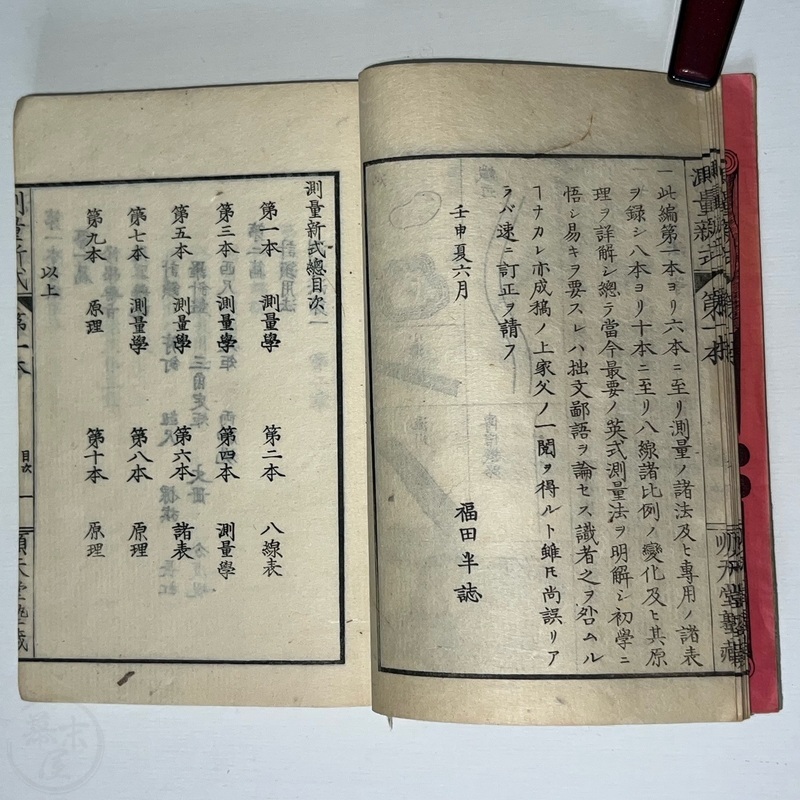 一此編第一本ヨリ六本ニ至リ測量ノ諸法及ヒ專用ノ諸表
ヲ録シ八本ヨリ十本ニ至リ八線諸比例ノ變化及ヒ其原
理ヲ詳解シ總テ當今最要ノ英式測量法ヲ明解シ初學ニ
悟シ易キヲ要スレハ拙文鄙語ヲ論セス識者之ヲ咎ムル
ヿナカレ亦成稿ノ上家父ノ一閲ヲ得ルト雖𪜈尚誤リア
ラバ速ニ訂正ヲ請フ
壬申夏六月
福田半誌
測量新式
第一本
順天堂塾藏
測量新式總目次
第一本 測量學
第二本 八線表
第三本 測量學
第四本 測量學
第五本 測量學
第六本 諸表
第七本 測量學
第八本 原理
第九本 原理
第十本 原理
以上
測量新式
第一本
目次
一
順天堂塾藏